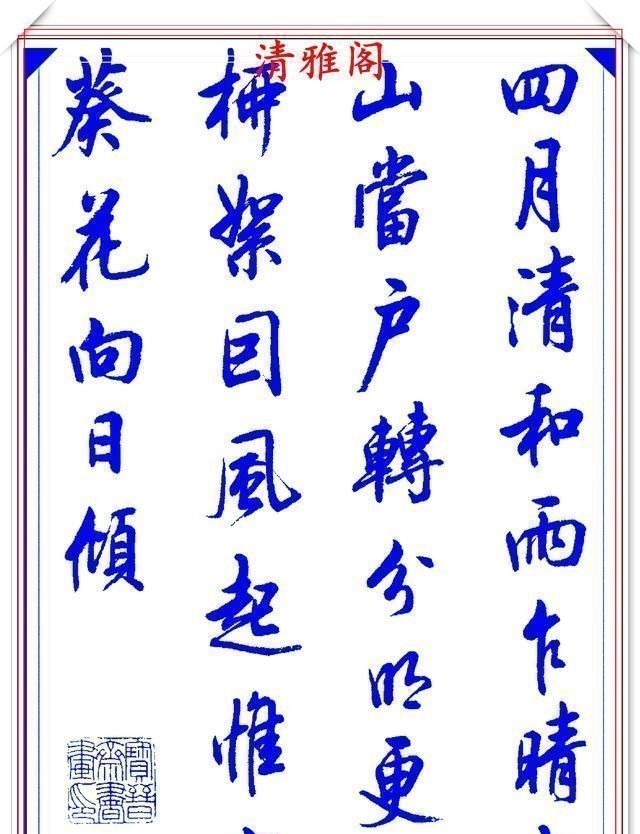 清雅阁
四月清和雨乍晴
山當户轉分明更
柳絮因風起惟
葵花向日傾
寶晉
齋書
畫印